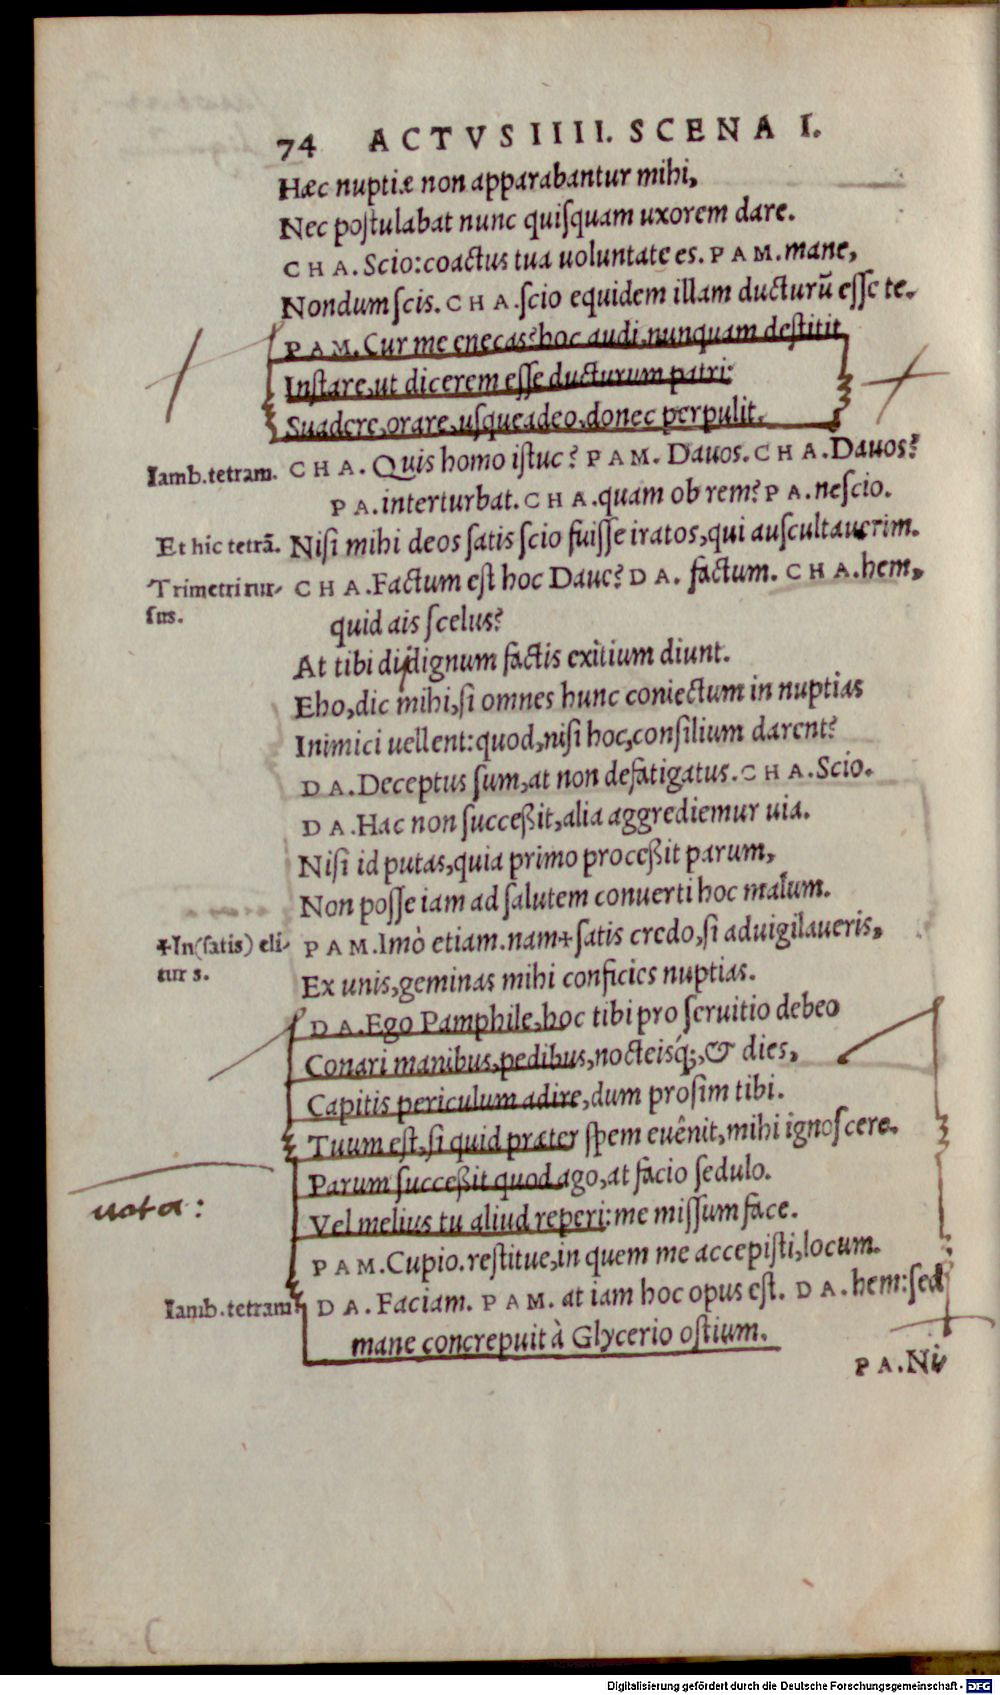 74 ACTVS IIII. SCENA I.
Hæc nuptiæ non apparabantur mihi,
Nec poſtulabat nunc quiſquam uxorem dare.
CHA. Scio: coactus tua uoluntate es. PAM. mane,
Nondum ſcis. CHA. ſcio equidem illam ducturū eſſe te.
PAM. Cur me enecas? hoc audi, nunquam deſtitit
Inſtare, ut dicerem eſſe ducturum patri:
Suadere, orare, uſqueadeo, donec perpulit.
Iamb. tetram. CHA. Quis homo iſtuc? PAM. Dauos. CHA. Dauos?
PA. interturbat. CHA. quam ob rem? PA. neſcio.
Et hic tetrā. Niſi mihi deos ſatis ſcio fuiſſe iratos, qui auſcultauerim.
Trimetri rur- CHA. Factum eſt hoc Daue? DA. factum. CHA. hem,
ſus. quid ais ſcelus?
At tibi dij dignum factis exitium duint.
Eho, dic mihi, ſi omnes hunc coniectum in nuptias
Inimici uellent: quod, niſi hoc, conſilium darent?
DA. Deceptus ſum, at non defatigatus. CHA. Scio.
DA. Hac non ſucceßit, alia aggrediemur uia.
Niſi id putas, quia primo proceßit parum,
Non poſſe iam ad ſalutem conuerti hoc malum.
+In (ſatis) eli- PAM. Imò etiam. nam+ ſatis credo, ſi aduigilaueris,
tur s. Ex unis, geminas mihi conficies nuptias.
DA. Ego Pamphile, hoc tibi pro ſeruitio debeo
Conari manibus, pedibus, nocteisq́;, & dies,
Capitis periculum adire, dum proſim tibi.
Tuum eſt, ſi quid præter ſpem euênit, mihi ignoſcere.
Parum ſucceßit quod ago, at facio ſedulo.
nota:
Vel melius tu aliud reperi: me miſſum face.
PAM. Cupio. reſtitue, in quem me accepiſti, locum.
Iamb. tetram DA. Faciam. PAM. at iam hoc opus eſt. DA. hem: ſed
mane concrepuit à Glycerio oſtium.
PA. Ni-
Digitalisierung gefördert durch die Deutsche Forschungsgemeinschaft - DFG